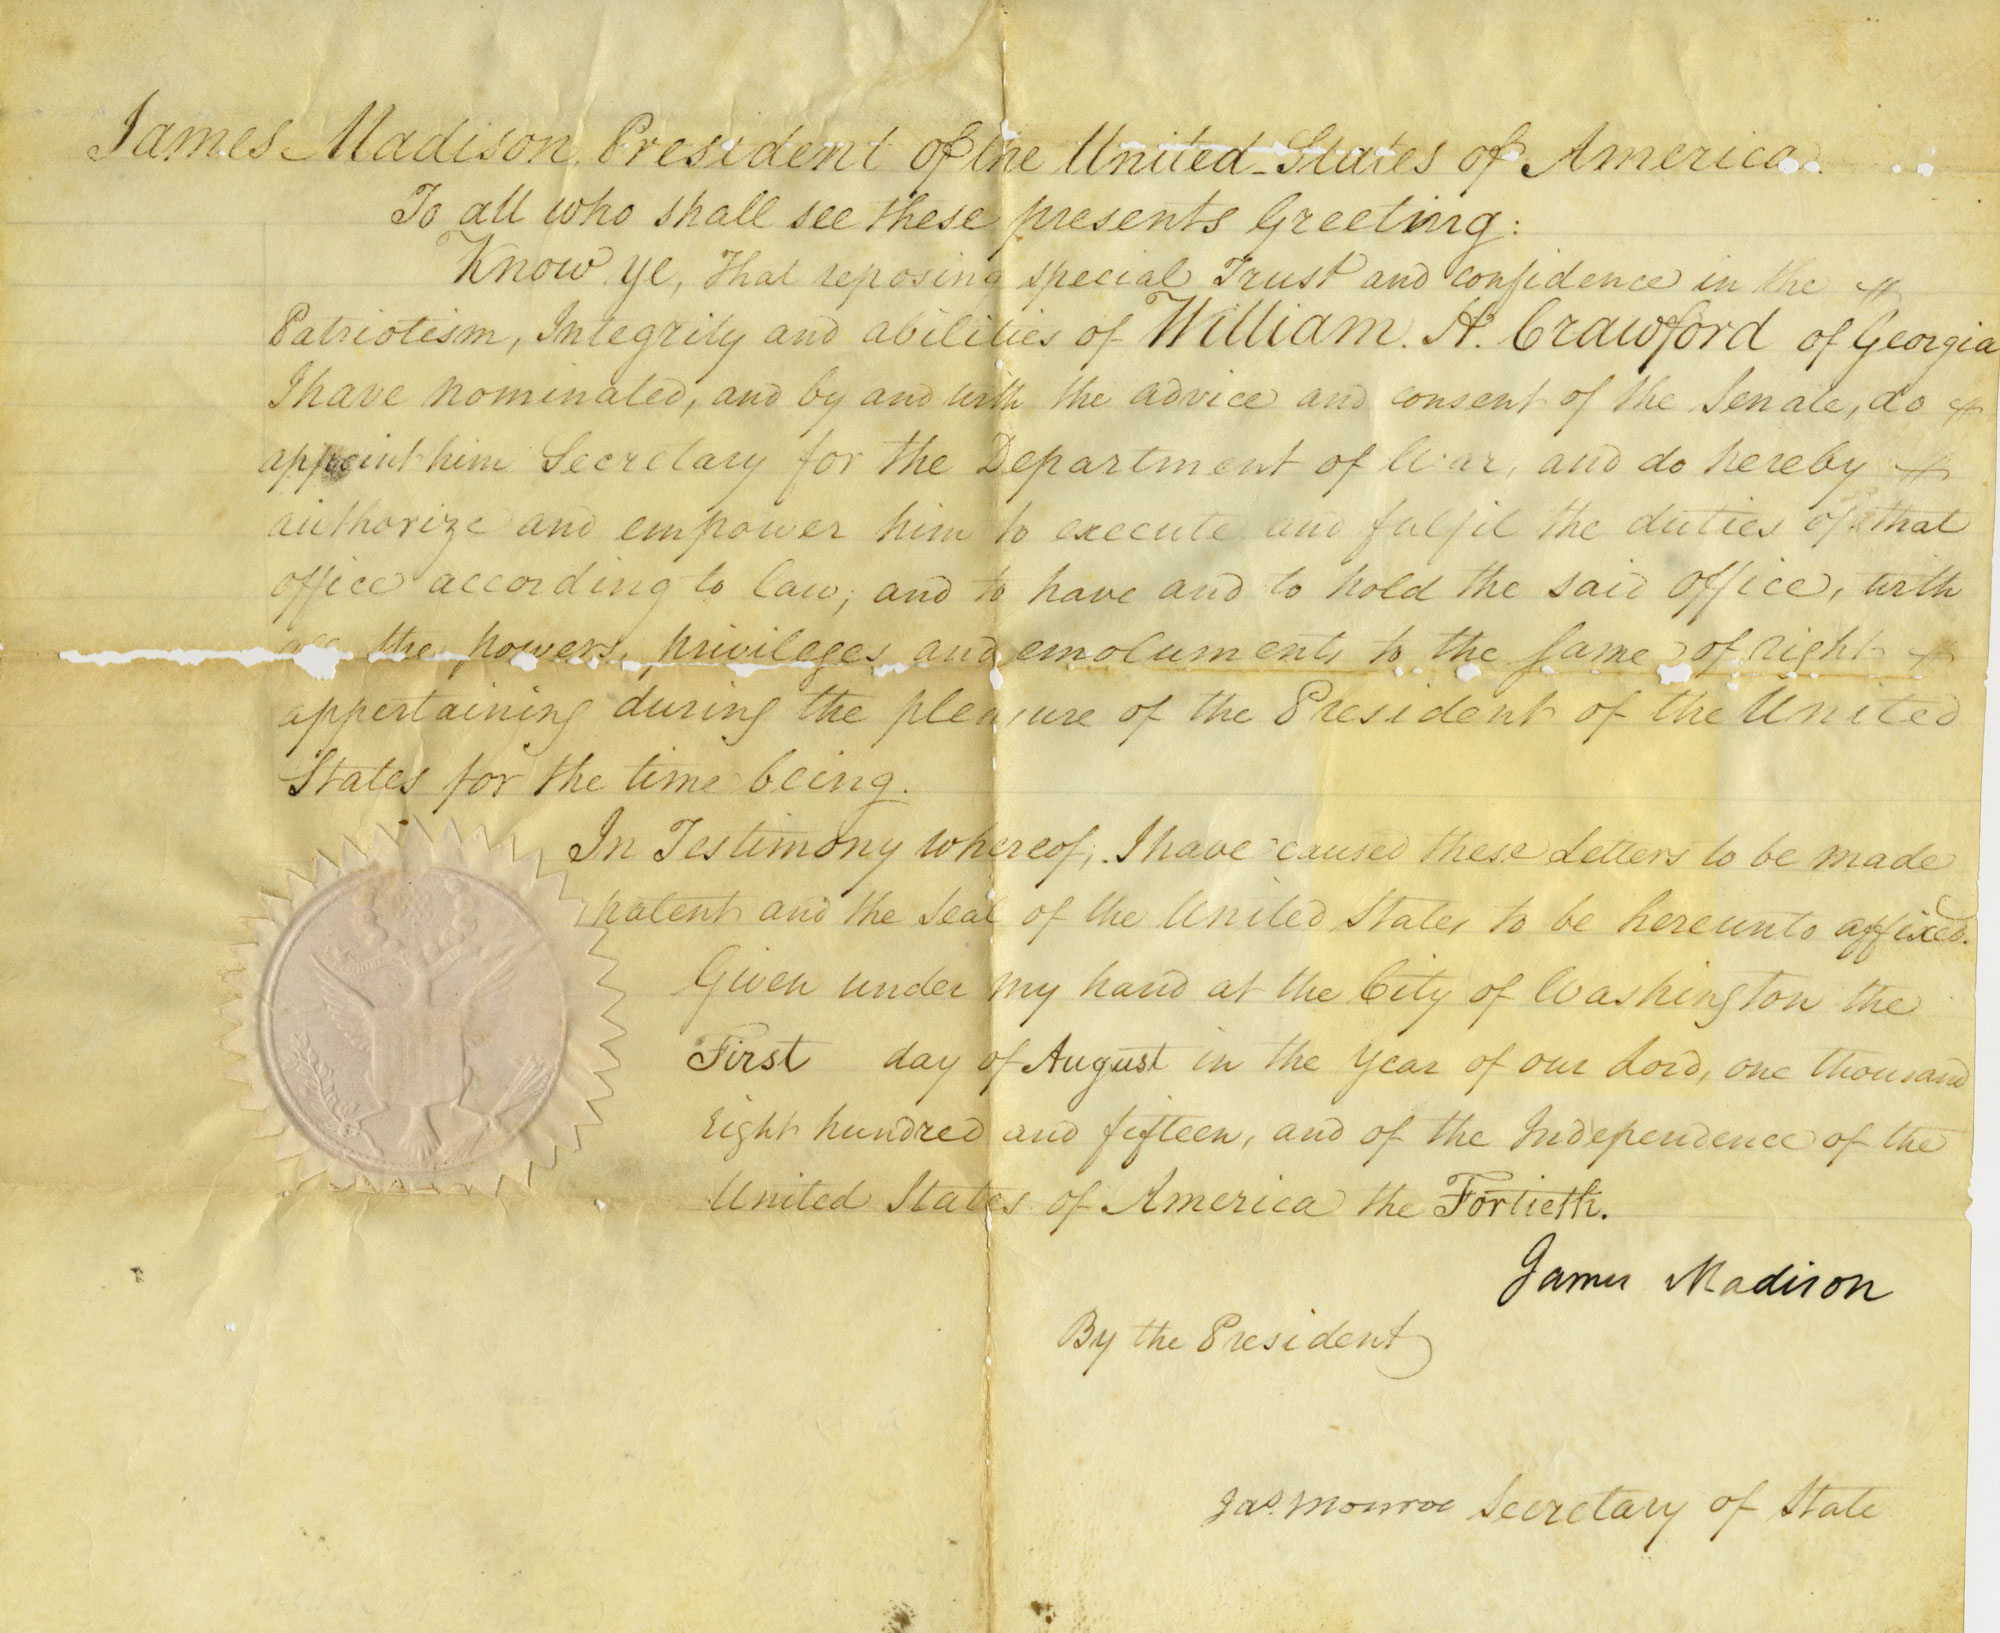 James Madison President of the United States of America.
To all who shall see these presents Greeting:
Know ye, That reposing special Trust and confidence in the
Patriotism, Integrity and abilities of William. H. Crawford of Georgia
I have nominated, and by and with the advice and consent of the Senate, do
appoint him Secretary for the Department of War, and do hereby
authorize and empower him to execute and fulfil the duties of that
office according to law; and to have and to hold the said office, with
all the powers, privileges and emoluments to the same of right
appertaining during the pleasure of the President of the United
States for the time being.
In Testimony whereof, I have caused these Letters to be made
patent and the seal of the United States to be hereunto affixed.
Given under my hand at the City of Washington the
First day of August in the Year of our Lord, one thousand
Eight hundred and fifteen, and of the Independence of the
United States of America the Fortieth.
James Madison
By the President
Jas. Monroe Secretary of State